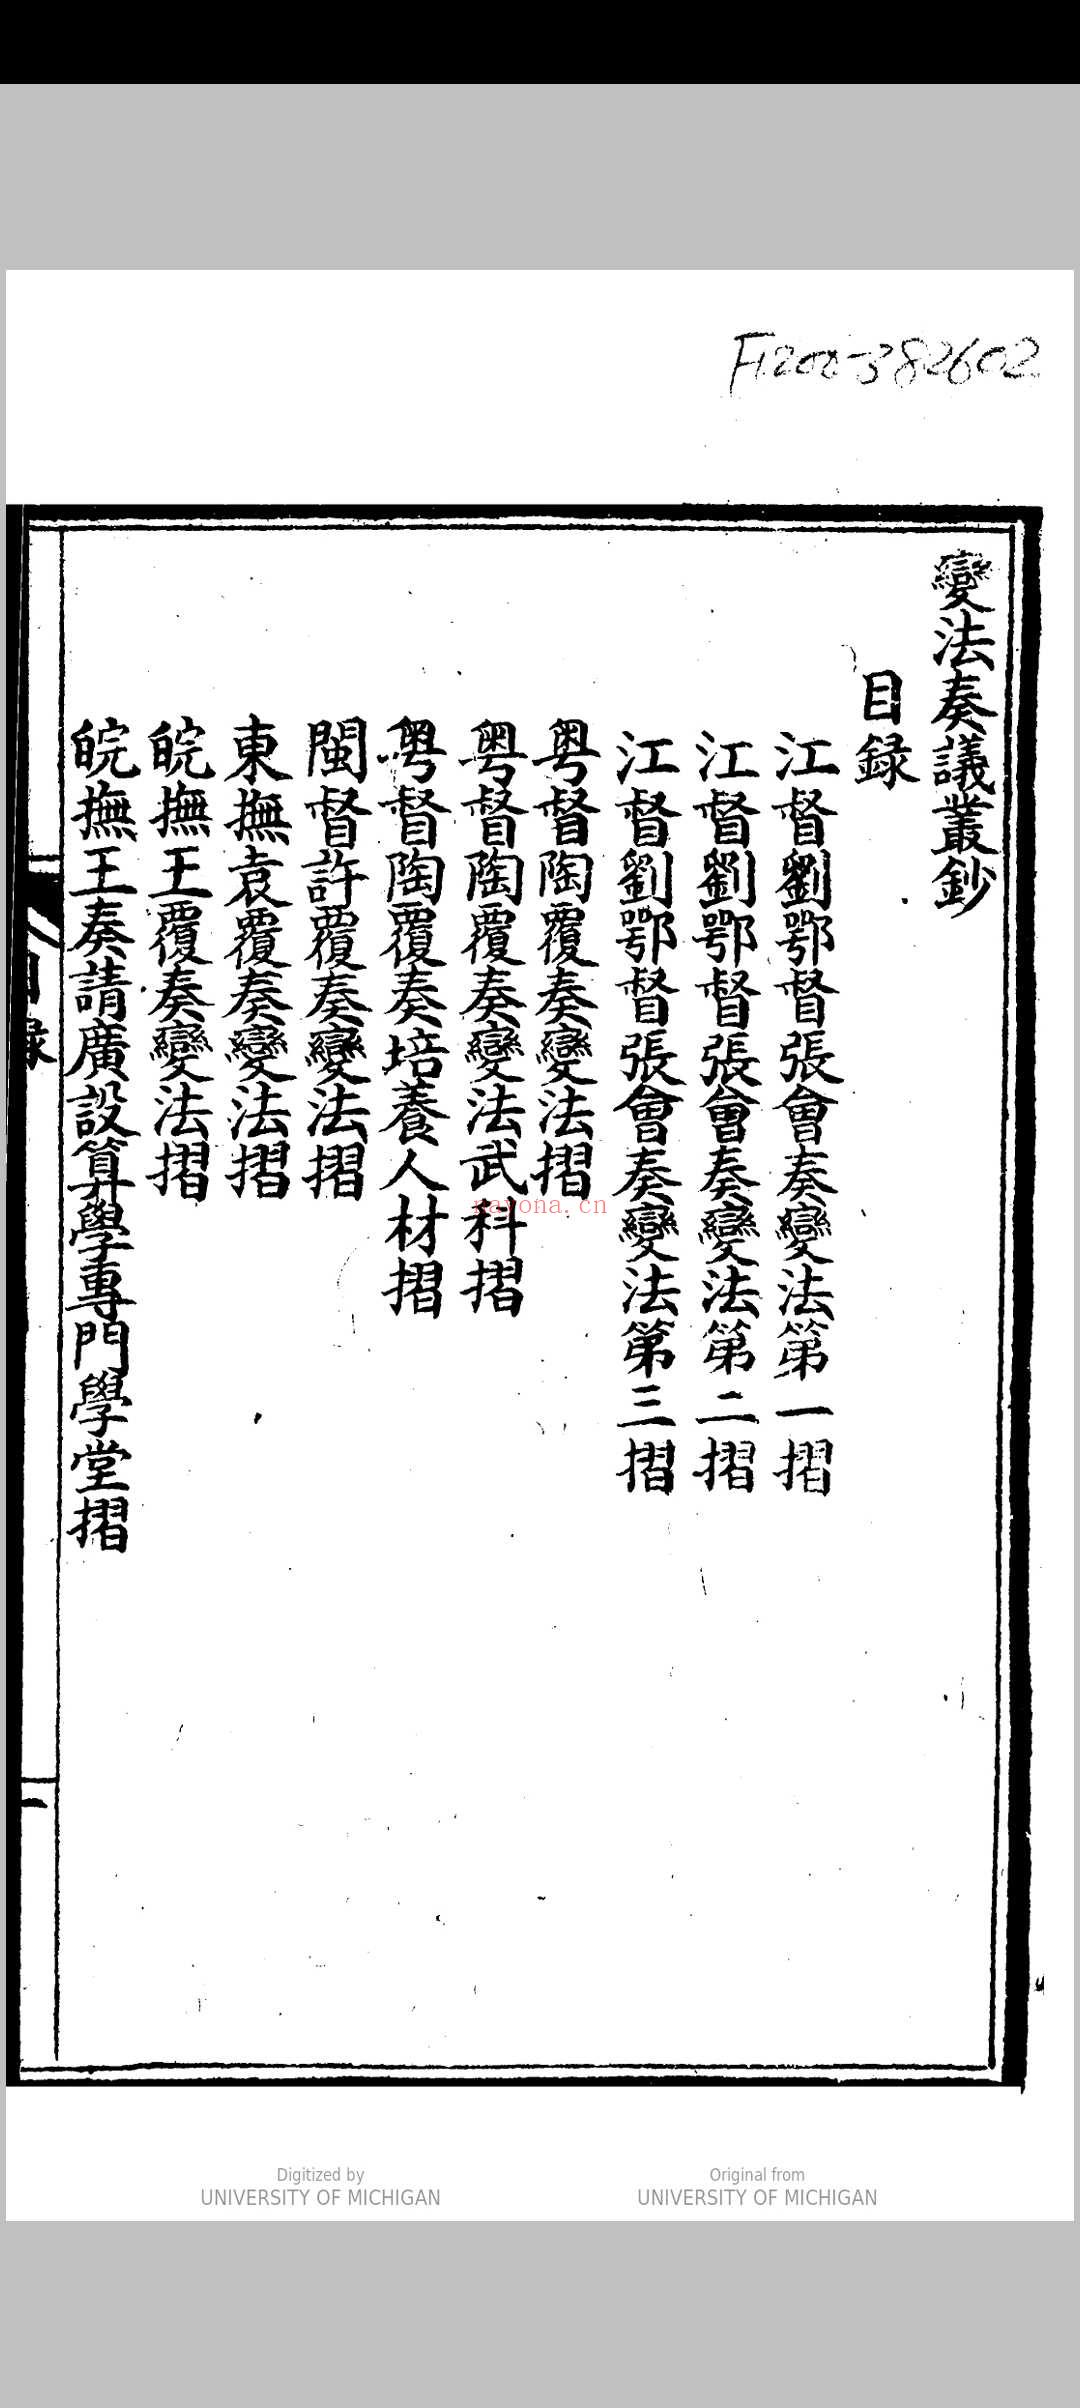 變法奏議叢鈔
目録
江督劉鄂督張會奏變法第一摺
江督劉鄂督張會奏變法第二摺
江督劉鄂督張會奏變法第三摺
粤督陶覆奏變法摺
粤督陶覆奏變法武科摺
粤督陶覆奏培養人材摺
閩督許覆奏變法摺
東撫袁覆奏變法摺
皖撫王覆奏變法摺
皖撫王奏請廣設算學專門學堂摺
目録
一
nayona.cn
Digitized by
UNIVERSITY OF MICHIGAN
Original from
UNIVERSITY OF MICHIGAN